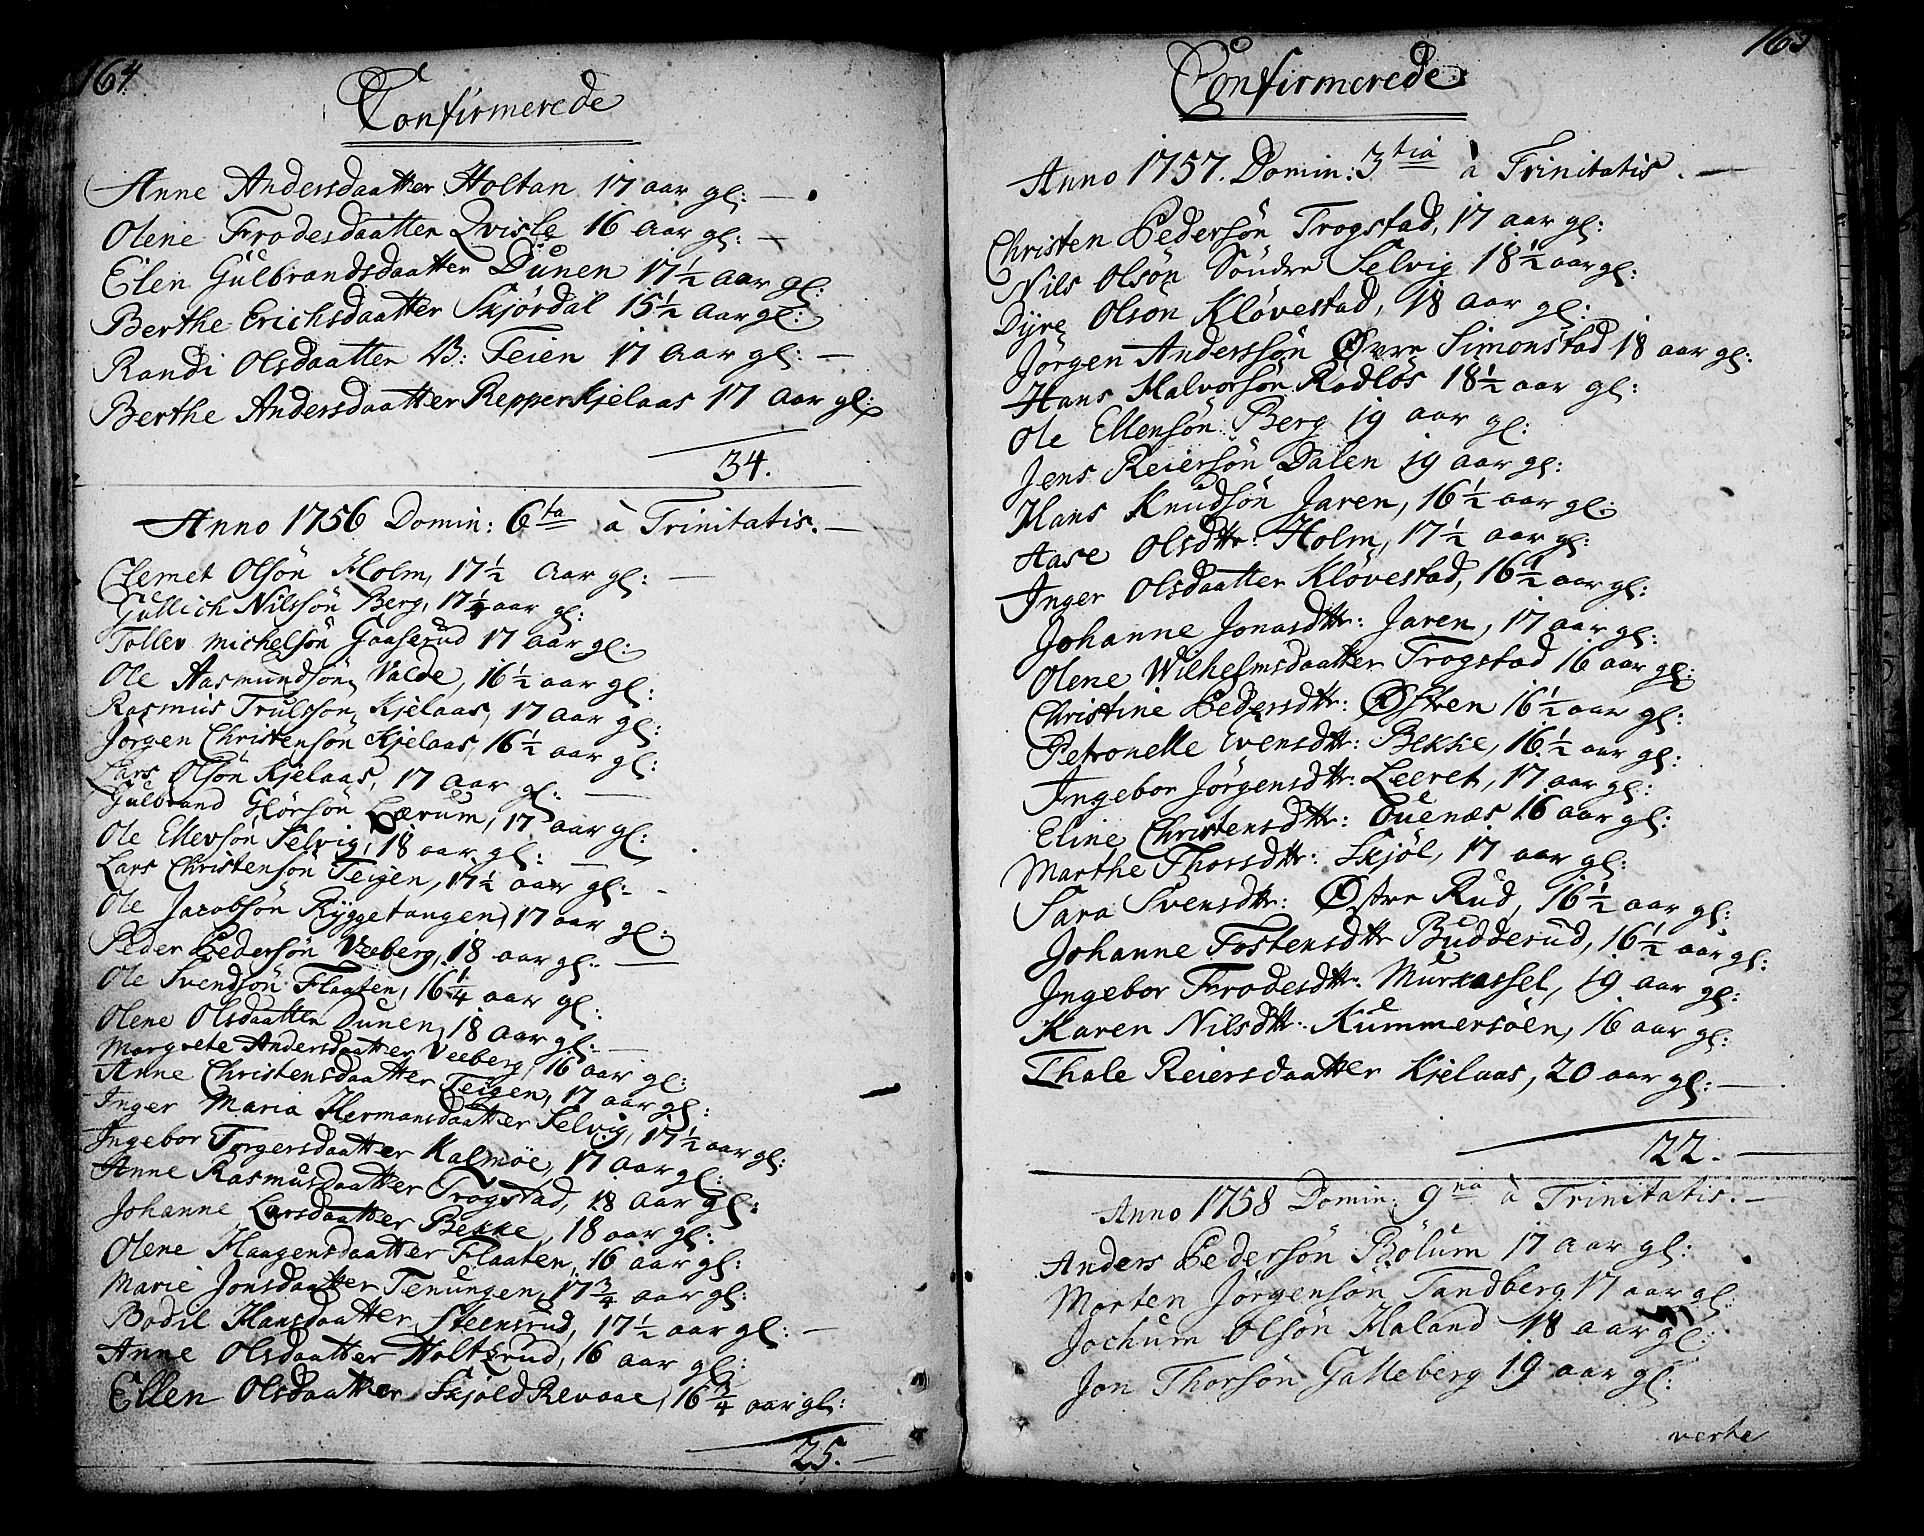 164
Confirmerede
Anne Andersdaatter Holtan 17 aar gl: —
Olene Frodesdaatter Qvisle 16 aar gl: —
Elen Gulbrandsdaatter Dunen 17 1/2 aar gl:
Berthe Erichsdaatter Skjørdal 15 1/2 aar gl:
Randi Olsdaatter B: Teien 17 aar gl: —
Berthe Andersdaatter Repperkjelaas 17 aar gl:
34.
Anno 1756 Domin: 6ta à Trinitatis. —
Clemet Olsön Holm, 17 1/2 aar gl: —
Gullich Nilssön Berg, 17 1/4 aar gl:
Tollev Michelsön Gaaserud 17 aar gl:
Ole Aasmundsön Valde, 16 1/2 aar gl:
Rasmus Trulssön Kjelaas, 17 aar gl:
Jörgen Christensön Kjelaas, 16 1/2 aar gl:
Lars Olsön Kjelaas, 17 aar gl: —
Gulbrand Glörsön Lærum, 17 aar gl:
Ole Ellevsön Selvig, 18 aar gl: —
Lars Christensön Teigen, 17 1/2 aar gl: -
Ole Jacobsön Ryggetangen, 17 aar gl:
Peder Pedersön Veeberg, 18 aar gl: —
Ole Svendsön Flaaten, 16 1/4 aar gl:
Olene Olsdaatter Dunen, 18 aar gl: —
Margrete Andersdaatter Veeberg, 16 aar gl:
Anne Christensdaatter Teigen, 17 aar gl:
Inger Maria Hermansdaatter Selvig, 17 1/2 aar gl:
Ingebor Torgersdaatter Kalmöe, 17 aar gl:
Anne Rasmusdaatter Trogstad, 18 aar gl:
Johanne Larsdaatter Bekke, 18 aar gl:
Olene Haagensdaatter Flaaten, 16 aar gl:
Marie Jonsdaatter Tenungen, 17 3/4 aar gl:
Bodil Hansdaatter Steensrud, 17 1/2 aar gl: —
Anne Olsdaatter Holtsrud, 16 aar gl:
Ellen Olsdaatter Skjøld Revaae, 16 3/4 aar gl:
25. —
165
Confirmerede
Anno 1757. Domin: 3tia à Trinitatis. —
Christen Pedersön Trogstad, 17 aar gl:
Nils Olsön Söndre Selvig 18 1/2 aar gl:
Dyre Olsön Kløvestad, 18 aar gl:
Jörgen Anderssön Øvre Simonstad 18 aar gl:
Hans Halvorsön Rødløs 18 1/2 aar gl:
Ole Ellensön Berg 19 aar gl:
Jens Reiersön Dalen 19 aar gl:
Hans Knudsön Jaren, 16 1/2 aar gl:
Aase Olsdtr: Holm, 17 1/2 aar gl:
Inger Olsdaatter Kløvestad, 16 1/2 aar gl:
Johanne Jonasdtr: Jaren, 17 aar gl:
Olene Wilhelmsdaatter Trogstad 16 aar gl:
Christine Pedersdtr: Østren 16 1/2 aar gl:
Petronelle Evensdtr: Bekke, 16 1/2 aar gl:
Ingebor Jörgensdtr: Leeret, 17 aar gl:
Eline Christensdtr: Tuenæs 16 aar gl:
Marthe Thorsdtr: Skjøl, 17 aar gl:
Sara Svensdtr: Østre Rud, 16 1/2 aar gl:
Johanne Tostensdtr Budderud, 16 1/2 aar gl:
Ingebor Frodesdtr: Murkassel, 19 aar gl:
Karen Nilsdtr: Kummersöen, 16 aar gl:
Thale Reiersdaatter Kjelaas, 20 aar gl: —
22. —
Anno 1758 Domin: 9na à Trinitatis. —
Anders Pedersön Bölum 17 aar gl:
Morten Jörgensön Tandberg 17 aar gl:
Jochum Olsön Haland 18 aar gl:
Jon Thorsön Galleberg 19 aar gl:
verte